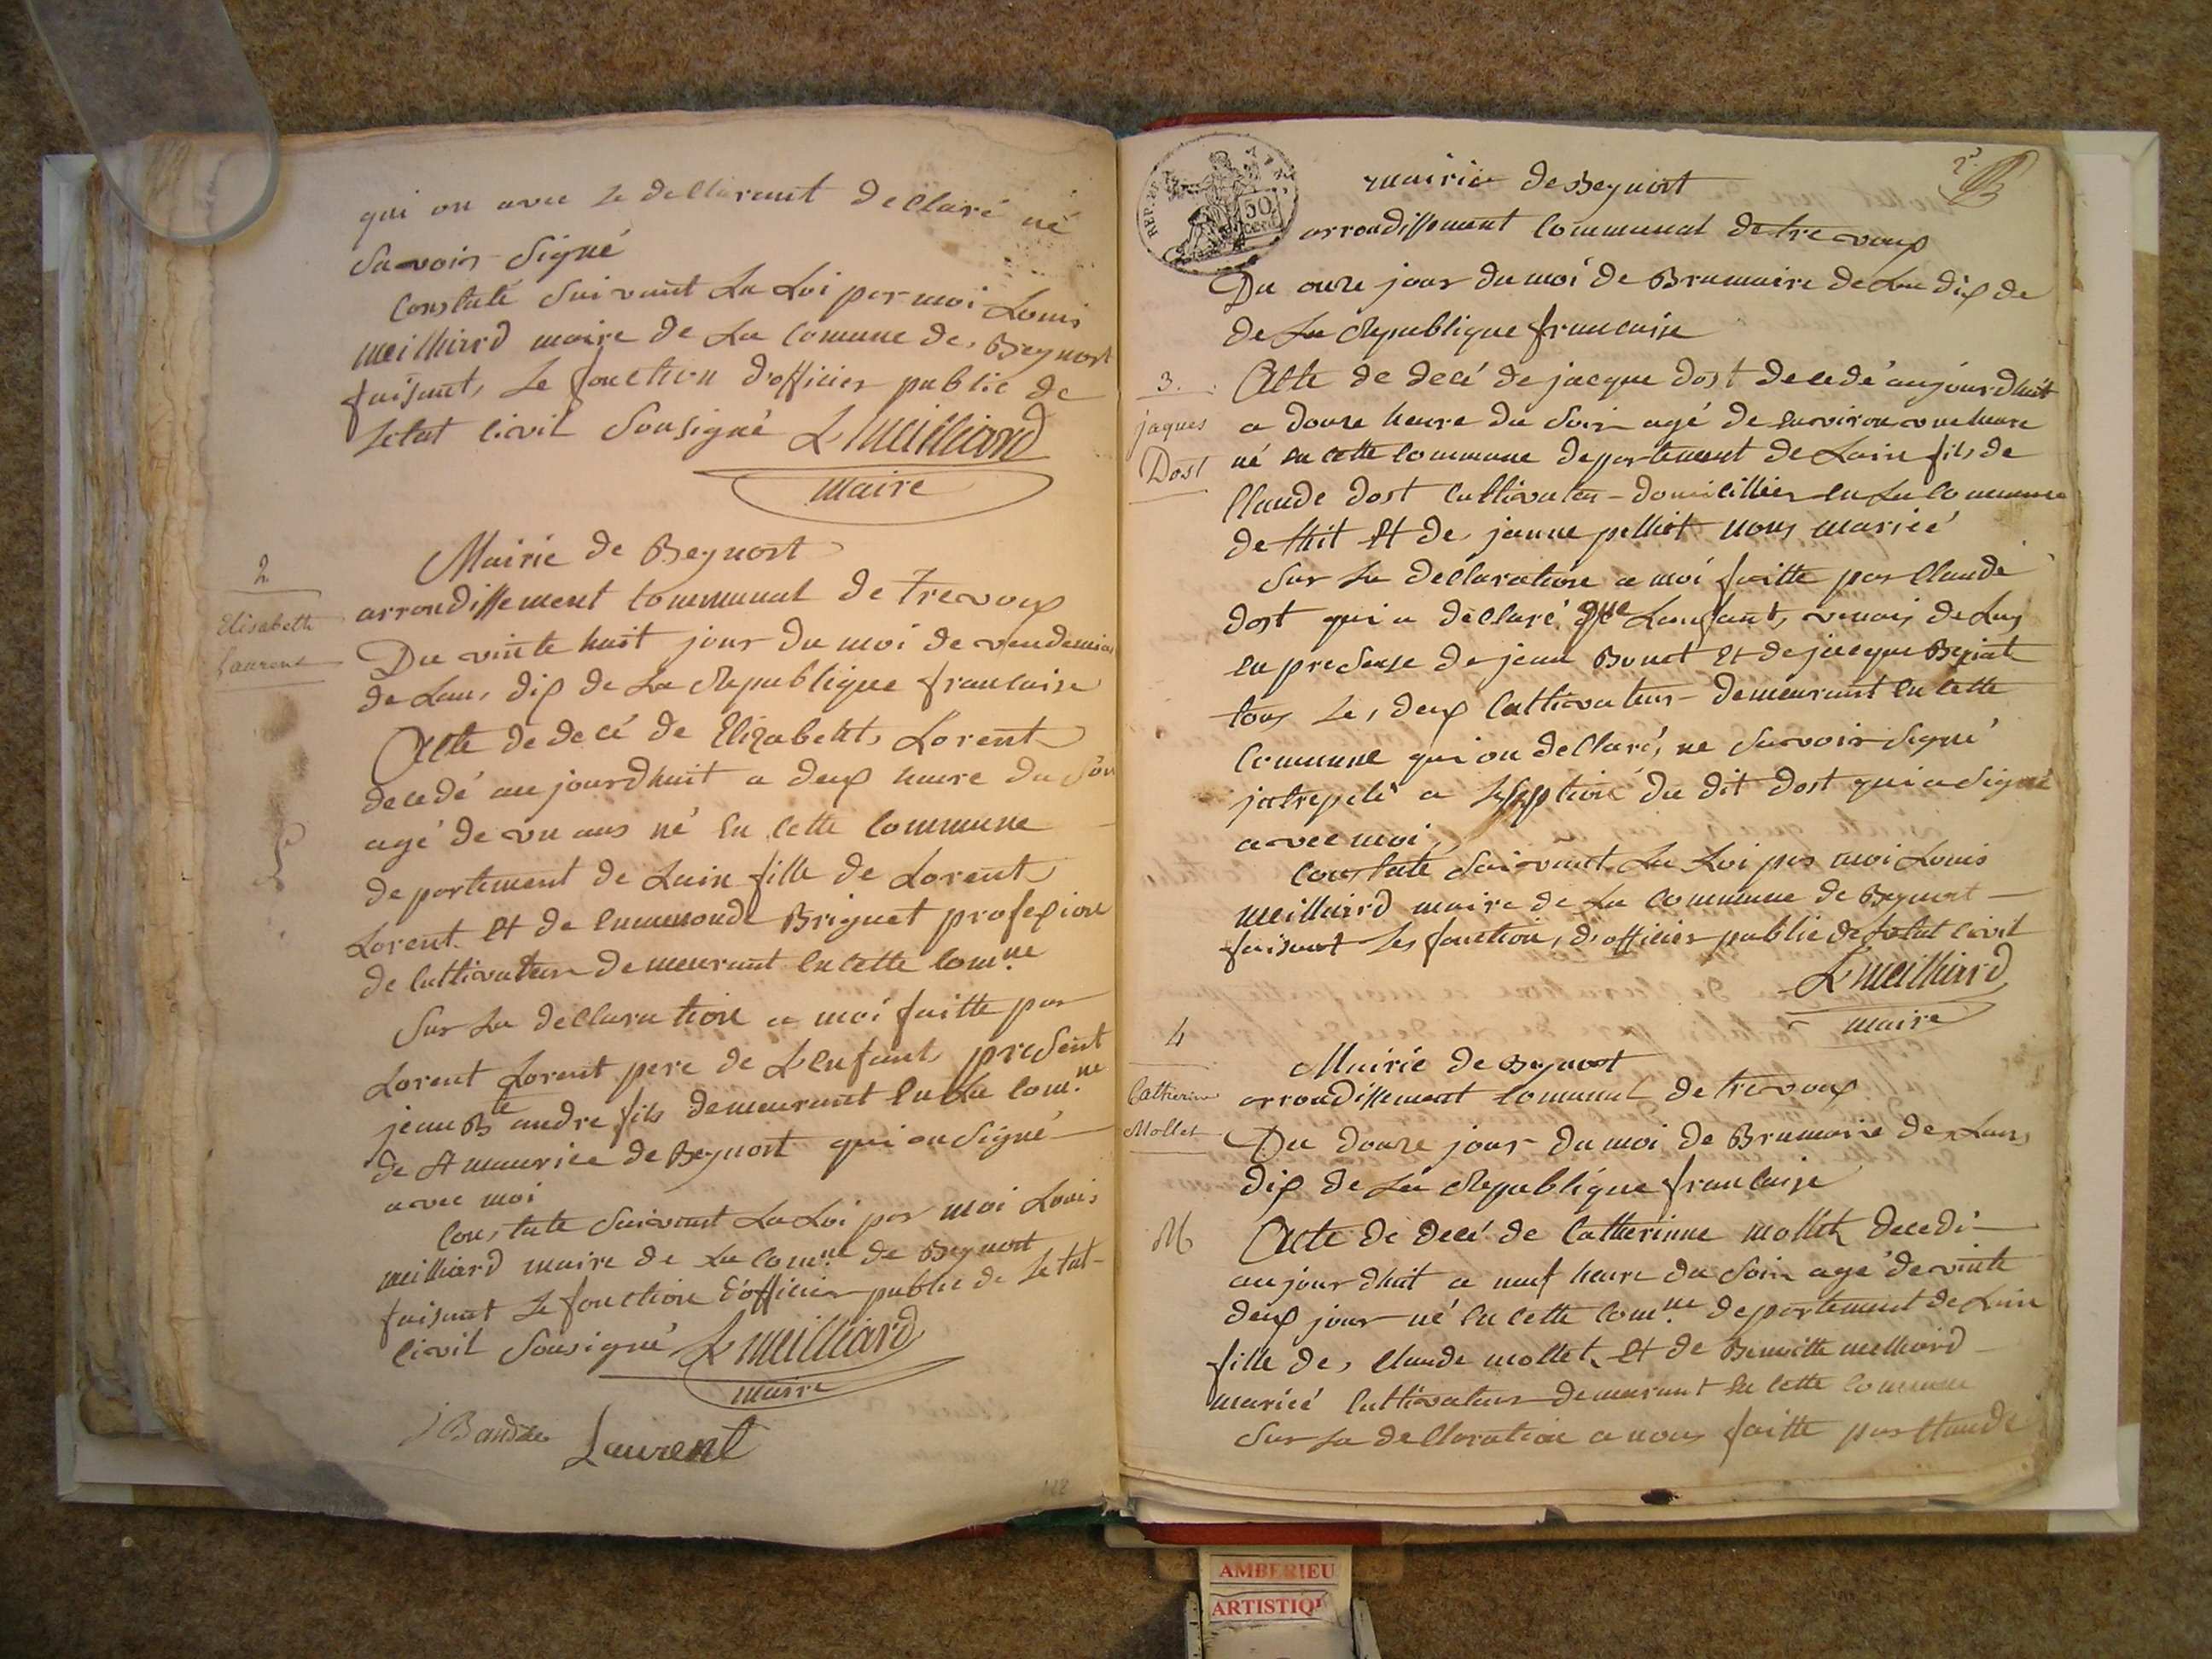 qui on avec le dellarent dellaré né
Savoir Signé
Constaté Suivant La Loi par moi Louis
meilliard maire de La Comune de Beynost
faisant Le fonction d'officier public de
Letat Civil Sousigné L meilliard
maire
2
Elisabeth
Laurent
Mairie de Beynost
arrondissement Communal de Trevoux
Du vinte huit jour du moi de vendemiai
de Lans dix de La Republique francaise
Acte de decé de Elizabeth Lorent
decedé aujourdhuit a deux heure du Soir
agé de un ans né en cette Commune
departement de Lain fille de Lorent
Lorent et de enmmonde Briguet profexion
de Cultivateur demeurant en cette Comne
Sur La declaration a moi faitte par
Lorent Lorent pere de L'enfant present
jean Bte andre fils demeurant en La Comne
de St maurice de Beynost qui on Signé
avec moi
Constate Suivant La Loi par moi Louis
meilliard maire de La Comne de Beynost
faisant Le fonction d'officier public de Letat
Civil Sousigné L meilliard
maire
J Bandre Laurent
112
REP. FRA.
50
cent.
2
mairie de Beynost
arrondissement Communal de trevoux
Du onze jour du moi de Brumaire de Lan dix de
de La Republique francaise
3.
jaques
Dost
Acte de decé de jacque dost decedé aujourdhuit
a douze heure du Soir agé de environ une heure
né en cette Commune departement de Lain fils de
Claude dost Cultivateur domicillier en La Commune
de thit et de janne pelliot nous mariéé
Sur La declaration a moi faitte par Claude
dost qui a declaré que Lenfant venais de Luy
en presense de jean Bonet et de jacque Beriat
tous Les deux Cultivateur demeurant en cette
Commune qui on dellaré ne Savoir Signé
jntrepelé a du dit dost qui a Signé
avec moi
Constate Suivant La Loi par moi Louis
meilliard maire de La Commune de Beynost
faisant Les fonction d'officier public de Letat Civil
L meilliard
maire
4
Catherine
Mollet
Mairie de Beynost
arrondissement Comunal de trevoux
Du douze jour du moi de Brumaire de Lans
dix de La Republique francaise
M
Acte de decé de Catherinne mollet decedé
aujourdhuit a neuf heure du Soir agé de vinte
deux jour né en cette Comne departement de Lain
fille de Claude mollet et de Benoitte melliard
mariéé Cultivateur demeurant en cette Commune
Sur La dellaration a nous faitte par Claude
AMBERIEU
ARTISTIQU